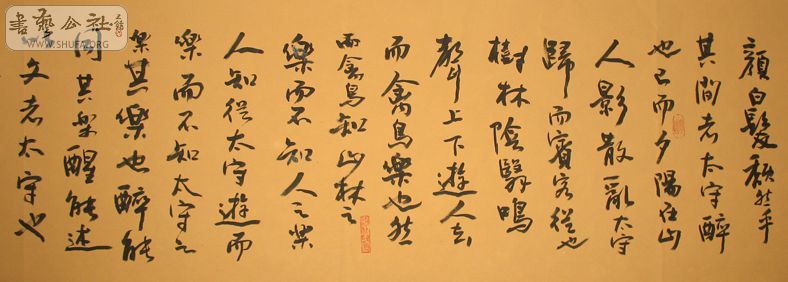 顏白髮頹然乎
其間者太守醉
也已而夕陽在山
人影散亂太守
歸而賓客從也
樹林陰翳鳴
聲上下遊人去
而禽鳥樂也然
而禽鳥知山林之
樂而不知人之樂
人知從太守遊而
樂而不知太守之
樂其樂也醉能
同其樂醒能述
文者太守也
書藝公社
WWW.SHUFA.ORG